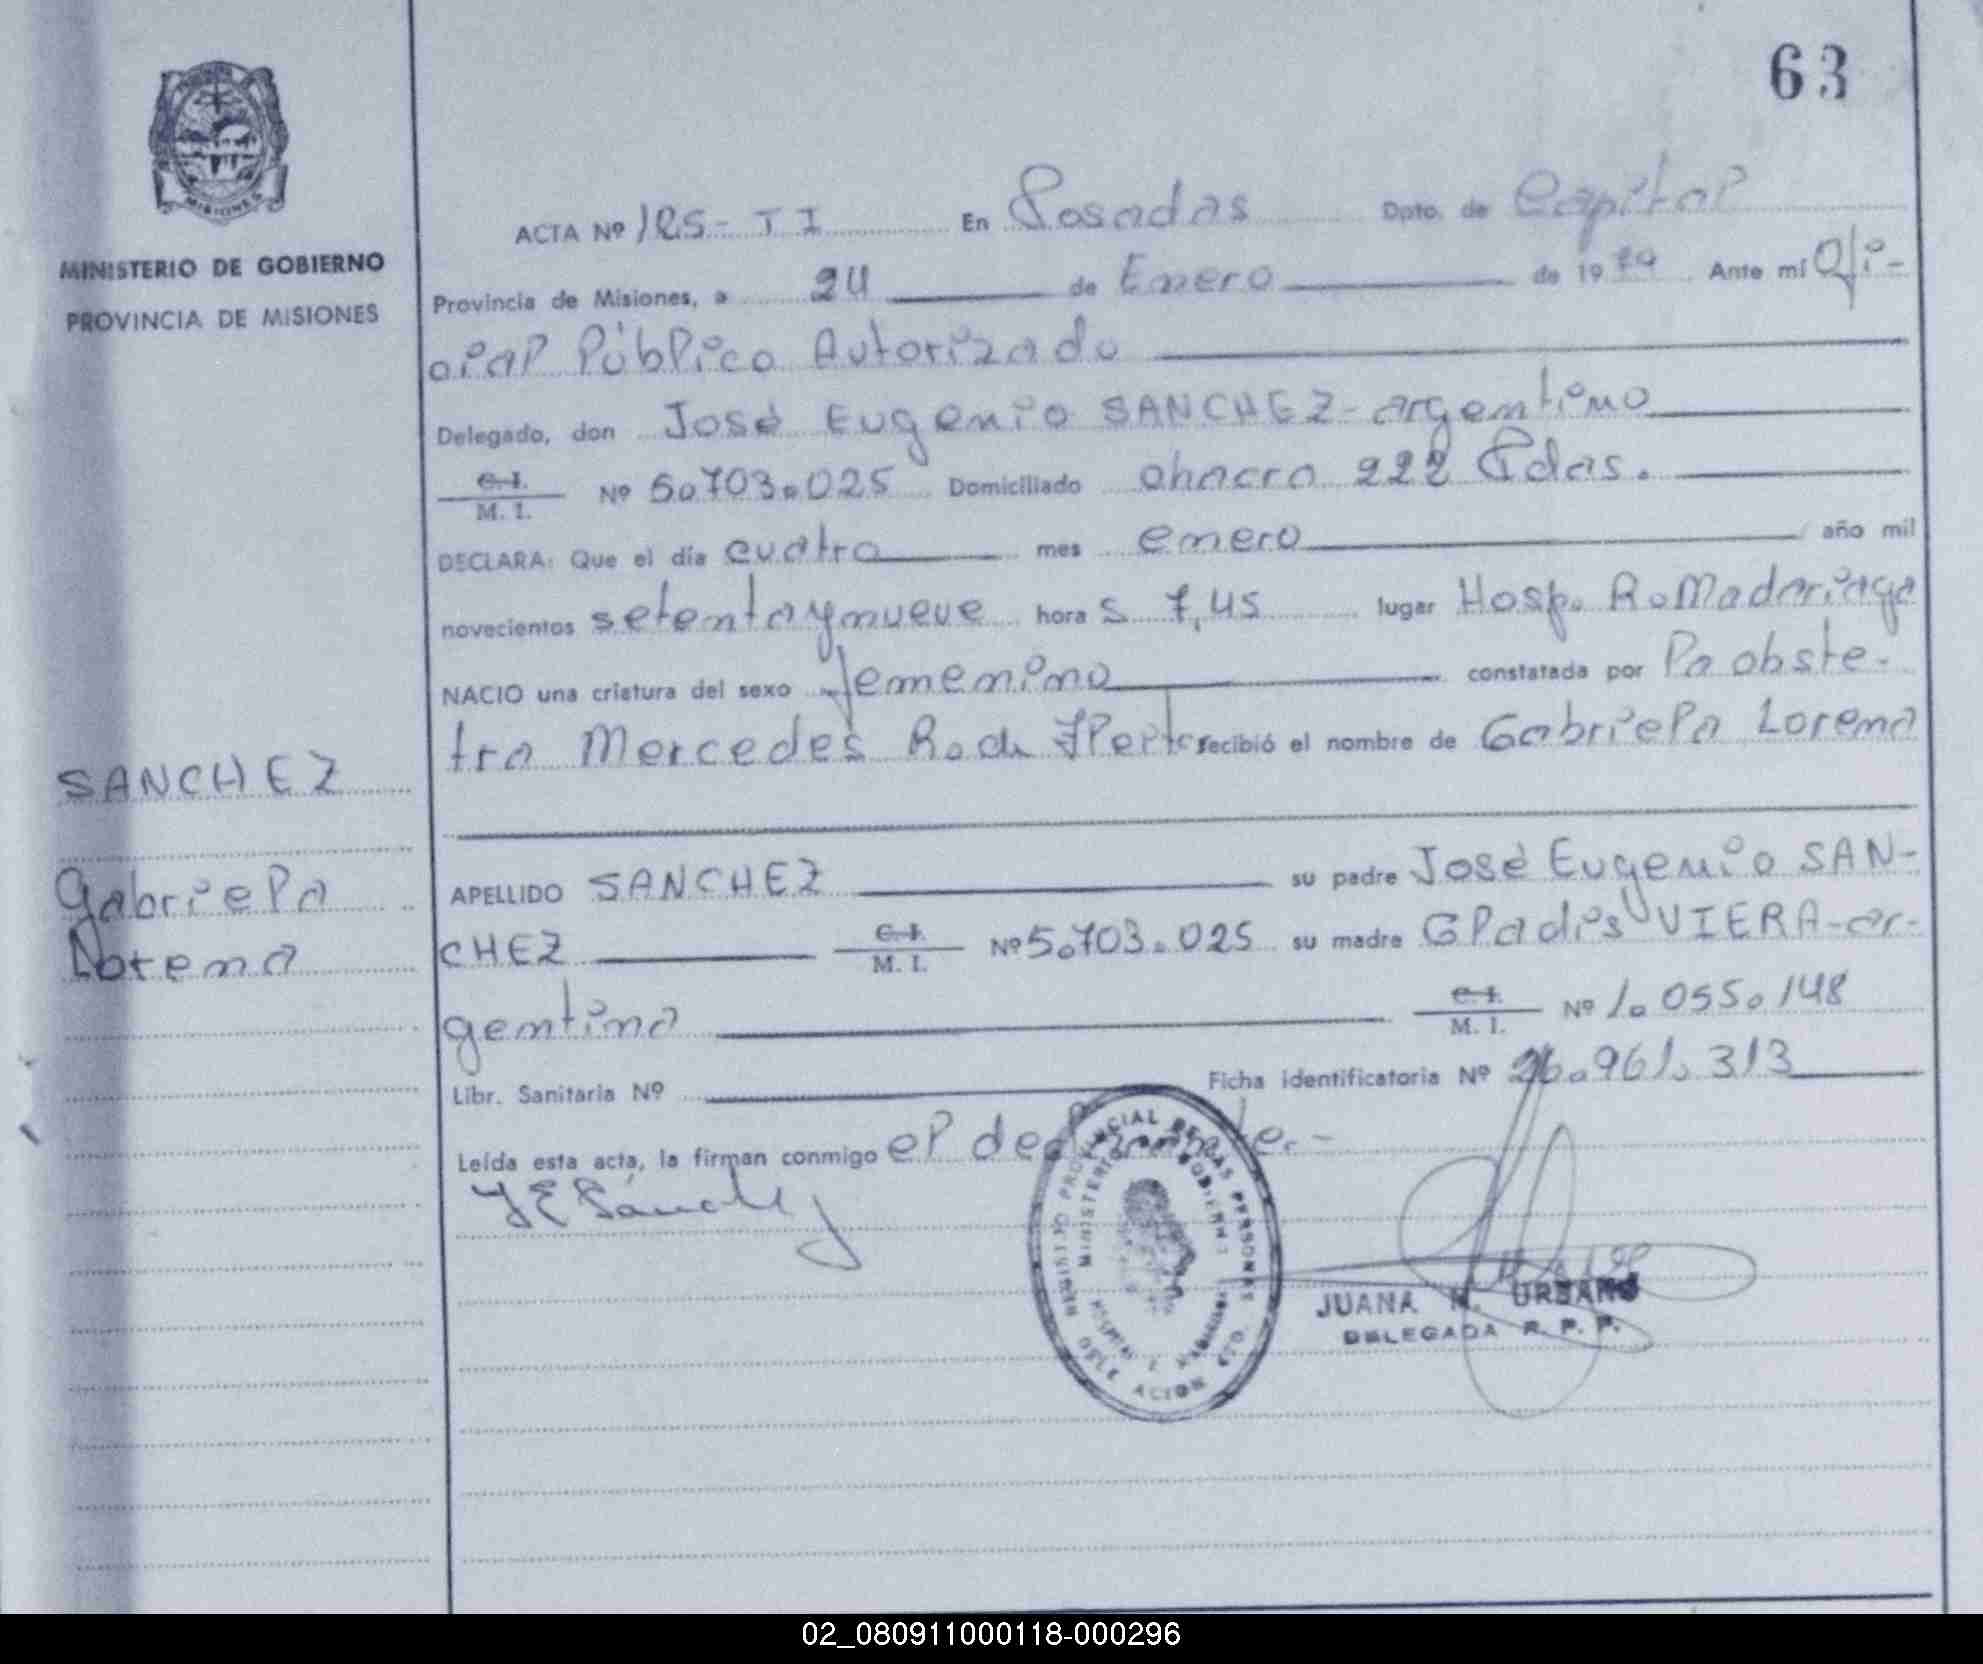 63
MISIONES
MINISTERIO DE GOBIERNO
PROVINCIA DE MISIONES
SANCHEZ
Gabriela
Lorena
ACTA Nº 125- T I En Posadas Dpto. de Capital
Provincia de Misiones, a 24 de Enero de 1979 Ante mí Ofi-
cial Público Autorizado
Delegado, don José Eugenio SANCHEZ-argentino
C. I. M. I. Nº 5.703.025 Domiciliado chacra 222 Pdas.
DECLARA: Que el día cuatro mes enero año mil
novecientos setenta y nueve hora s 7,45 lugar Hosp. R. Madariaga
NACIO una criatura del sexo femenino constatada por la obste-
tra Mercedes R. de recibió el nombre de Gabriela Lorena
APELLIDO SANCHEZ su padre José Eugenio SAN-
CHEZ C. I. M. I. Nº 5.703.025 su madre Gladis VIERA-ar-
gentina C. I. M. I. Nº 1.055.148
Libr. Sanitaria Nº Ficha identificatoria Nº 26.961.313
Leída esta acta, la firman conmigo el declarante.-
J E Sánchez
REGISTRO PROVINCIAL DE LAS PERSONAS
MINISTERIO DE GOBIERNO
DELEGACION
JUANA N. URBANO
DELEGADA R. P. P.
02_080911000118-000296